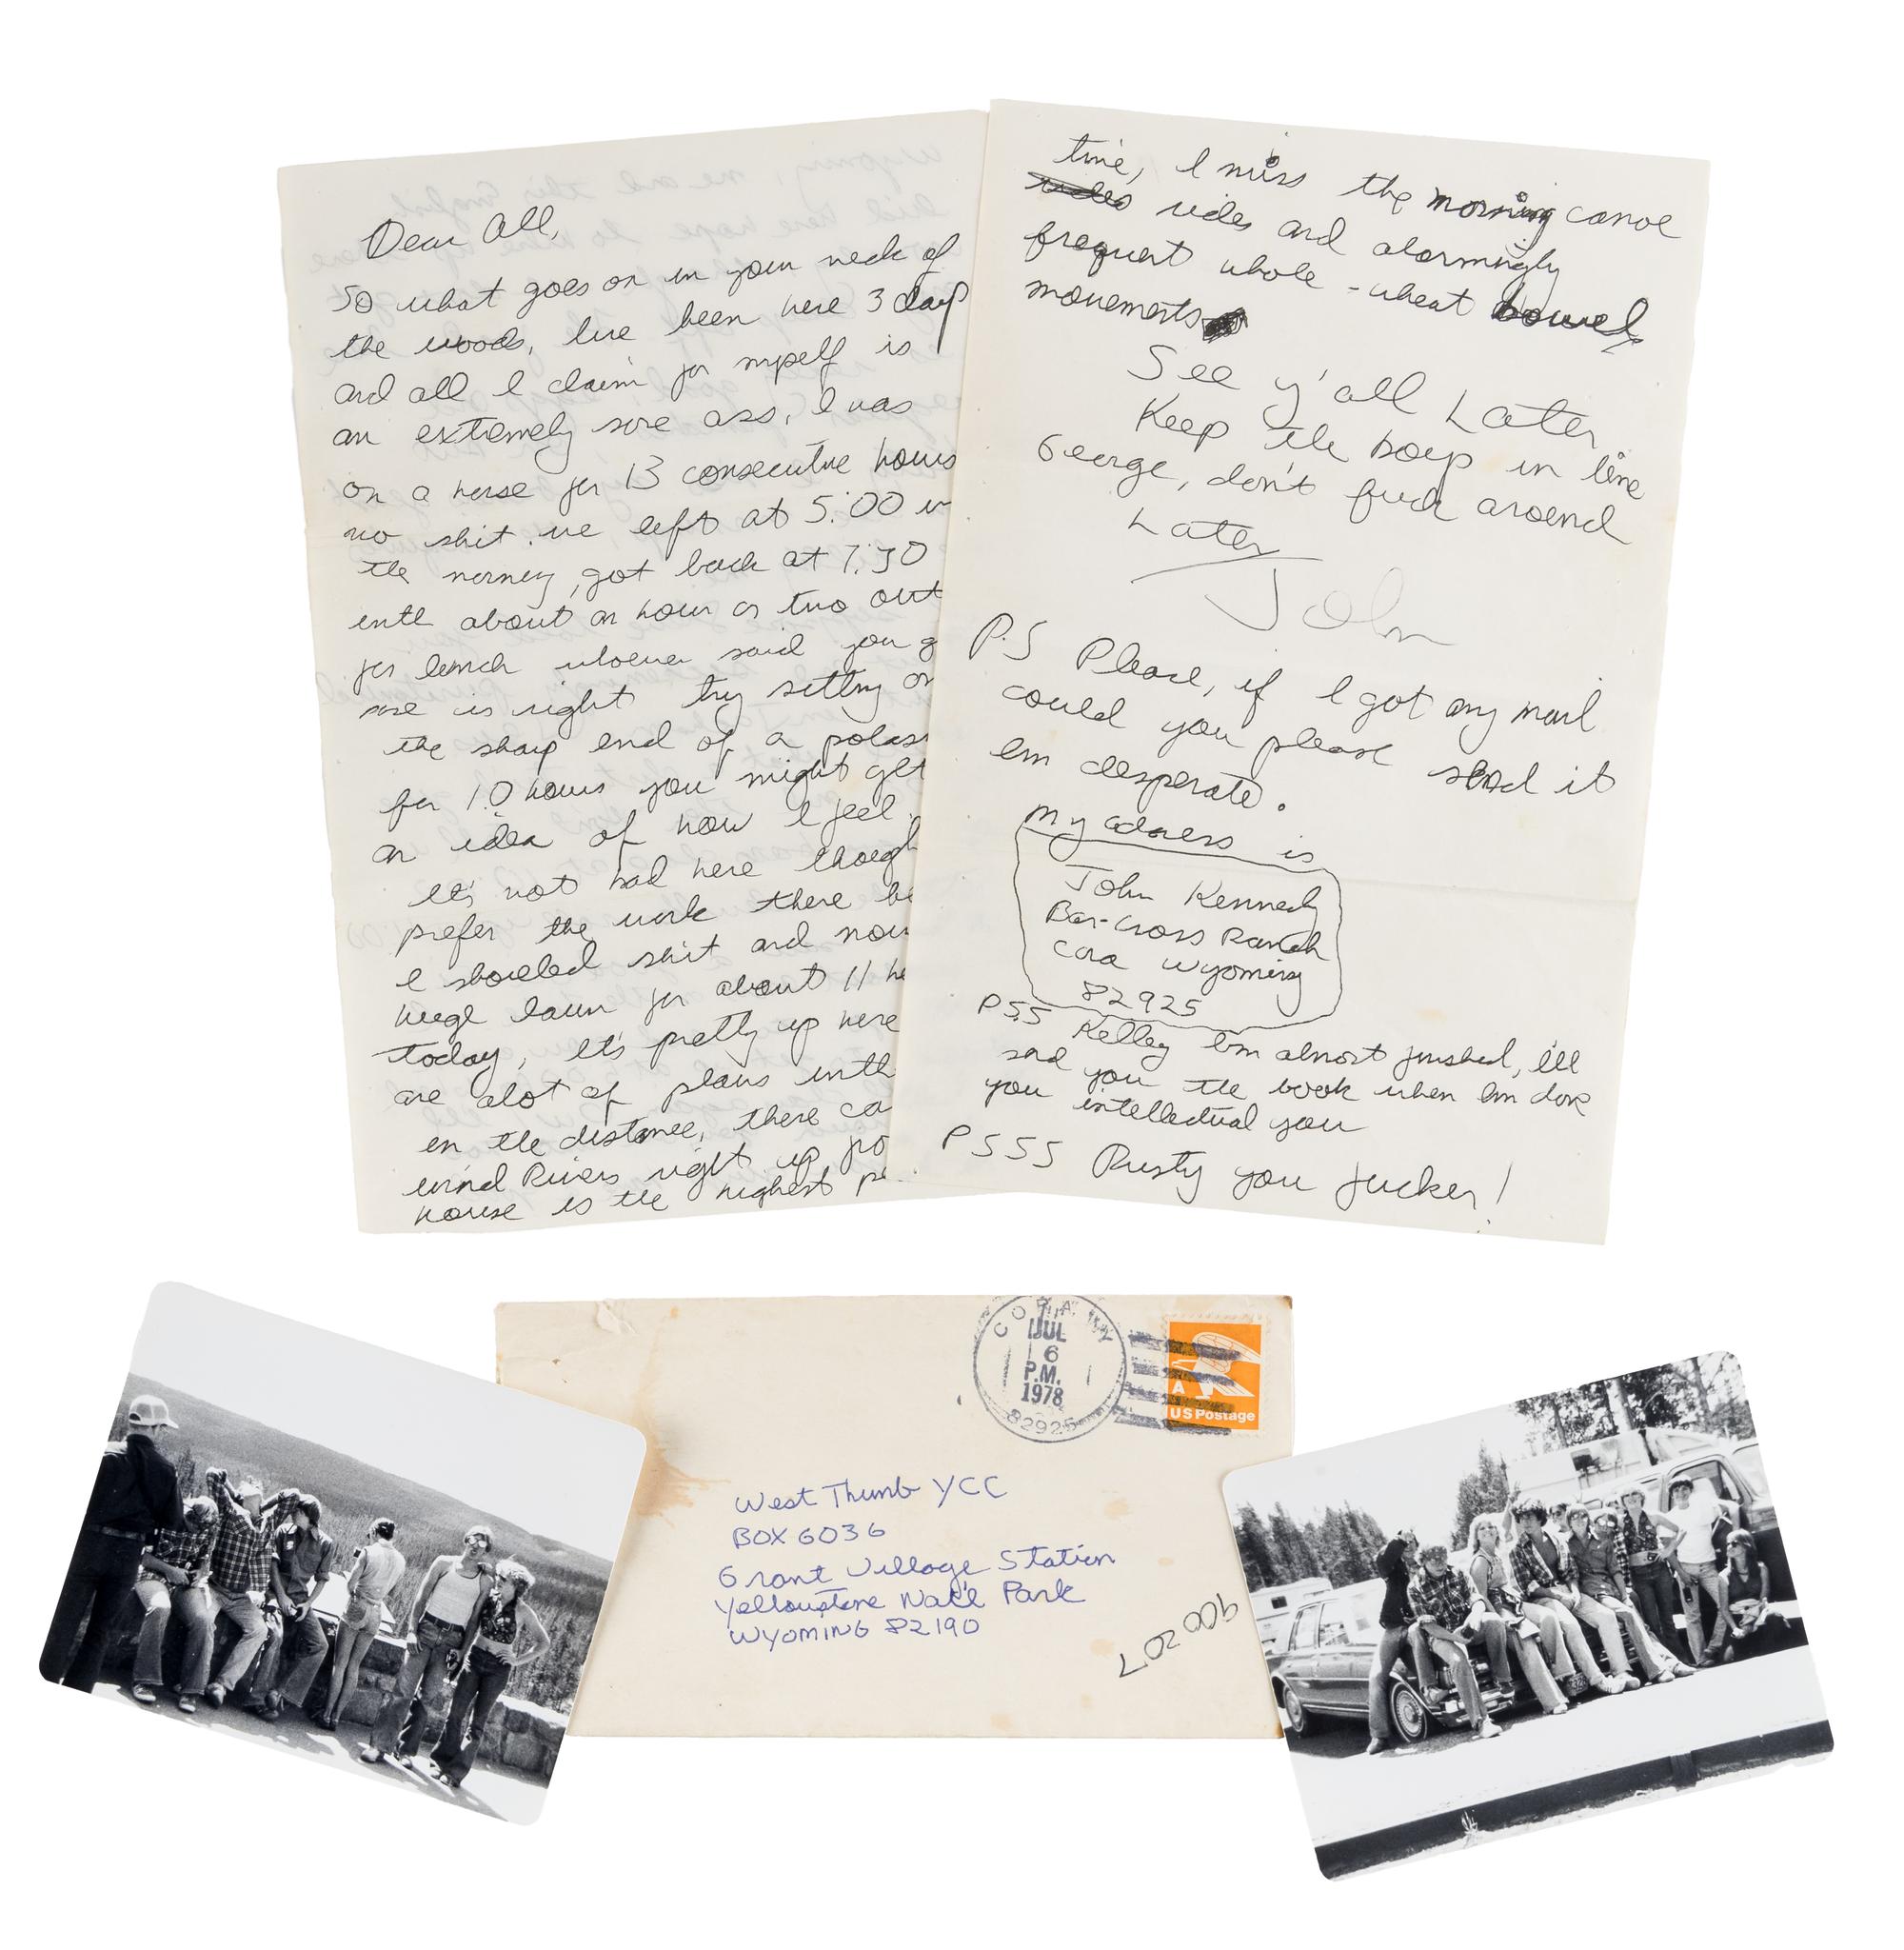 Dear All,
So what goes on in your neck of
the woods, Ive been here 3 days
and all I claim for myself is
an extremely sore ass, I was
on a horse for 13 consecutive hours
no shit. we left at 5:00 in
the morning, got back at 7:30
with about an hour or two out
for lunch whoever said you g
sore is right try sitting on
the sharp end of a
for 10 hours you might get
an idea of how I feel.
It's not bad here though
prefer the work there
I shoveled shit and
huge lawn for about 11
today, It's pretty up here
are alot of plains with
in the distance, there ca
wind Rivers right up
house is the highest
time, I miss the morning canoe
rides and alarmingly
frequent whole-wheat bowel
movements
See y'all Later
Keep the boys in line
George, don't fuck around
Later
John
P.S Please, if I got any mail
could you please send it
Im desperate.
My adress is
John Kennedy
Bar-Cross Ranch
Cora Wyoming
82925
PSS Kelley Im almost finished, I'll
send you the book when Im done
you intellectual you
PSSS Rusty you fucker!
CORA, WY
JUL
6
P.M.
1978
82925
A
US Postage
West Thumb YCC
BOX 6036
Grant Village Station
Yellowstone Nat'l Park
WYOMING 82190